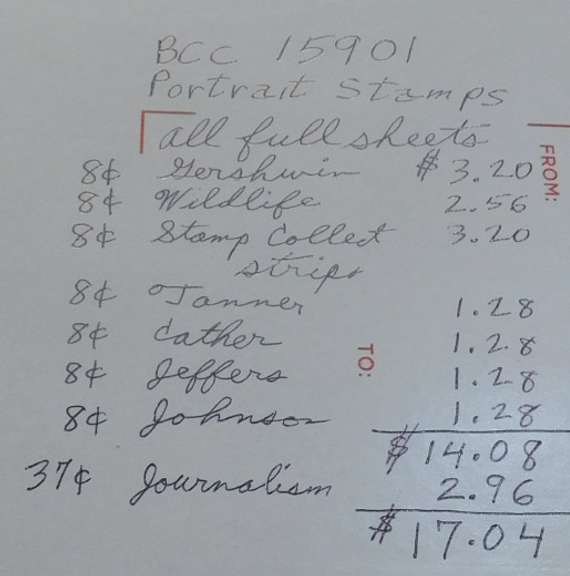 BCC 15901
Portrait Stamps
all full sheets
FROM:
8¢ Gershwin $3.20
8¢ Wildlife 2.56
8¢ Stamp Collect 3.20
strips
8¢ Tanner 1.28
8¢ Cather 1.28
TO:
8¢ Jeffers 1.28
8¢ Johnson 1.28
$14.08
37¢ Journalism 2.96
$17.04